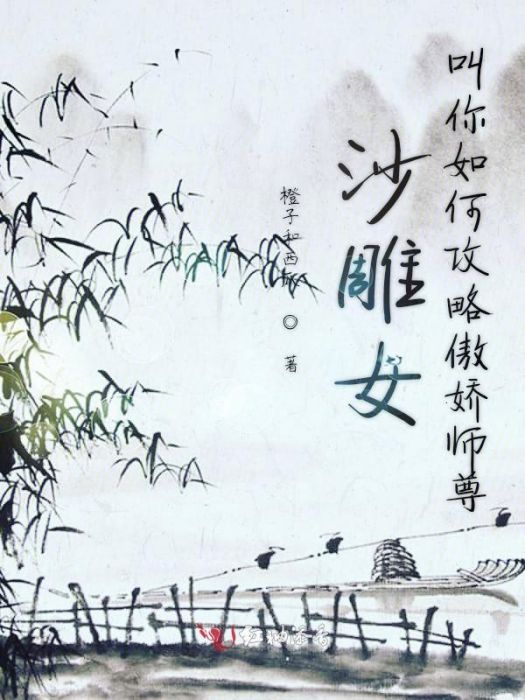 沙雕女
叫你如何攻略傲娇师尊
橙子和西瓜 ◎ 著